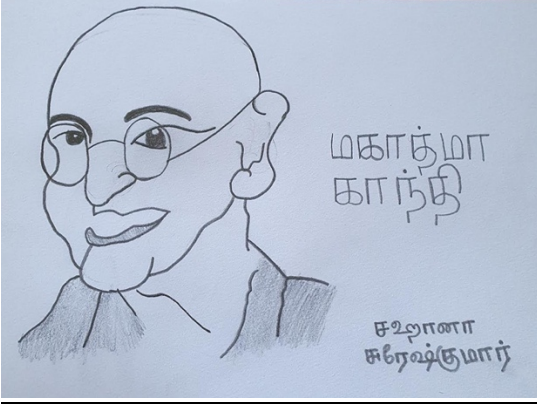 மகாத்மா
காந்தி
சஹானா
சுரேஷ்குமார்